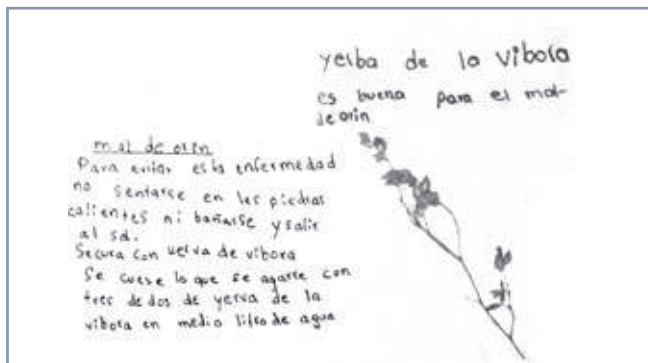 yerba de la vibora
es buena para el mal
de orin
mal de orin
Para evitar esta enfermedad
no sentarse en las piedras
calientes ni bañarse y salir
al sol.
Secura con yerva de vibora
Se cuese lo que se agarre con
tres dedos de yerva de la
vibora en medio litro de agua